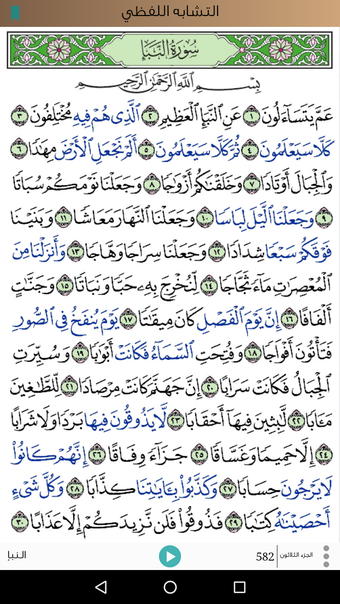 التشابه اللفظي
سُورَةُ النَّبَإِ
بِسْمِ ٱللَّهِ ٱلرَّحْمَٰنِ ٱلرَّحِيمِ
عَمَّ يَتَسَآءَلُونَ ١ عَنِ ٱلنَّبَإِ ٱلْعَظِيمِ ٢ ٱلَّذِى هُمْ فِيهِ مُخْتَلِفُونَ ٣
كَلَّا سَيَعْلَمُونَ ٤ ثُمَّ كَلَّا سَيَعْلَمُونَ ٥ أَلَمْ نَجْعَلِ ٱلْأَرْضَ مِهَٰدًا ٦
وَٱلْجِبَالَ أَوْتَادًا ٧ وَخَلَقْنَٰكُمْ أَزْوَٰجًا ٨ وَجَعَلْنَا نَوْمَكُمْ سُبَاتًا
٩ وَجَعَلْنَا ٱلَّيْلَ لِبَاسًا ١٠ وَجَعَلْنَا ٱلنَّهَارَ مَعَاشًا ١١ وَبَنَيْنَا
فَوْقَكُمْ سَبْعًا شِدَادًا ١٢ وَجَعَلْنَا سِرَاجًا وَهَّاجًا ١٣ وَأَنزَلْنَا مِنَ
ٱلْمُعْصِرَٰتِ مَآءً ثَجَّاجًا ١٤ لِّنُخْرِجَ بِهِۦ حَبًّا وَنَبَاتًا ١٥ وَجَنَّٰتٍ
أَلْفَافًا ١٦ إِنَّ يَوْمَ ٱلْفَصْلِ كَانَ مِيقَٰتًا ١٧ يَوْمَ يُنفَخُ فِى ٱلصُّورِ
فَتَأْتُونَ أَفْوَاجًا ١٨ وَفُتِحَتِ ٱلسَّمَآءُ فَكَانَتْ أَبْوَٰبًا ١٩ وَسُيِّرَتِ
ٱلْجِبَالُ فَكَانَتْ سَرَابًا ٢٠ إِنَّ جَهَنَّمَ كَانَتْ مِرْصَادًا ٢١ لِّلطَّٰغِينَ
مَـَٔابًا ٢٢ لَّٰبِثِينَ فِيهَآ أَحْقَابًا ٢٣ لَّا يَذُوقُونَ فِيهَا بَرْدًا وَلَا شَرَابًا
٢٤ إِلَّا حَمِيمًا وَغَسَّاقًا ٢٥ جَزَآءً وِفَاقًا ٢٦ إِنَّهُمْ كَانُوا۟
لَا يَرْجُونَ حِسَابًا ٢٧ وَكَذَّبُوا۟ بِـَٔايَٰتِنَا كِذَّابًا ٢٨ وَكُلَّ شَىْءٍ
أَحْصَيْنَٰهُ كِتَٰبًا ٢٩ فَذُوقُوا۟ فَلَن نَّزِيدَكُمْ إِلَّا عَذَابًا ٣٠
الجزء الثلاثون 582 النبإ